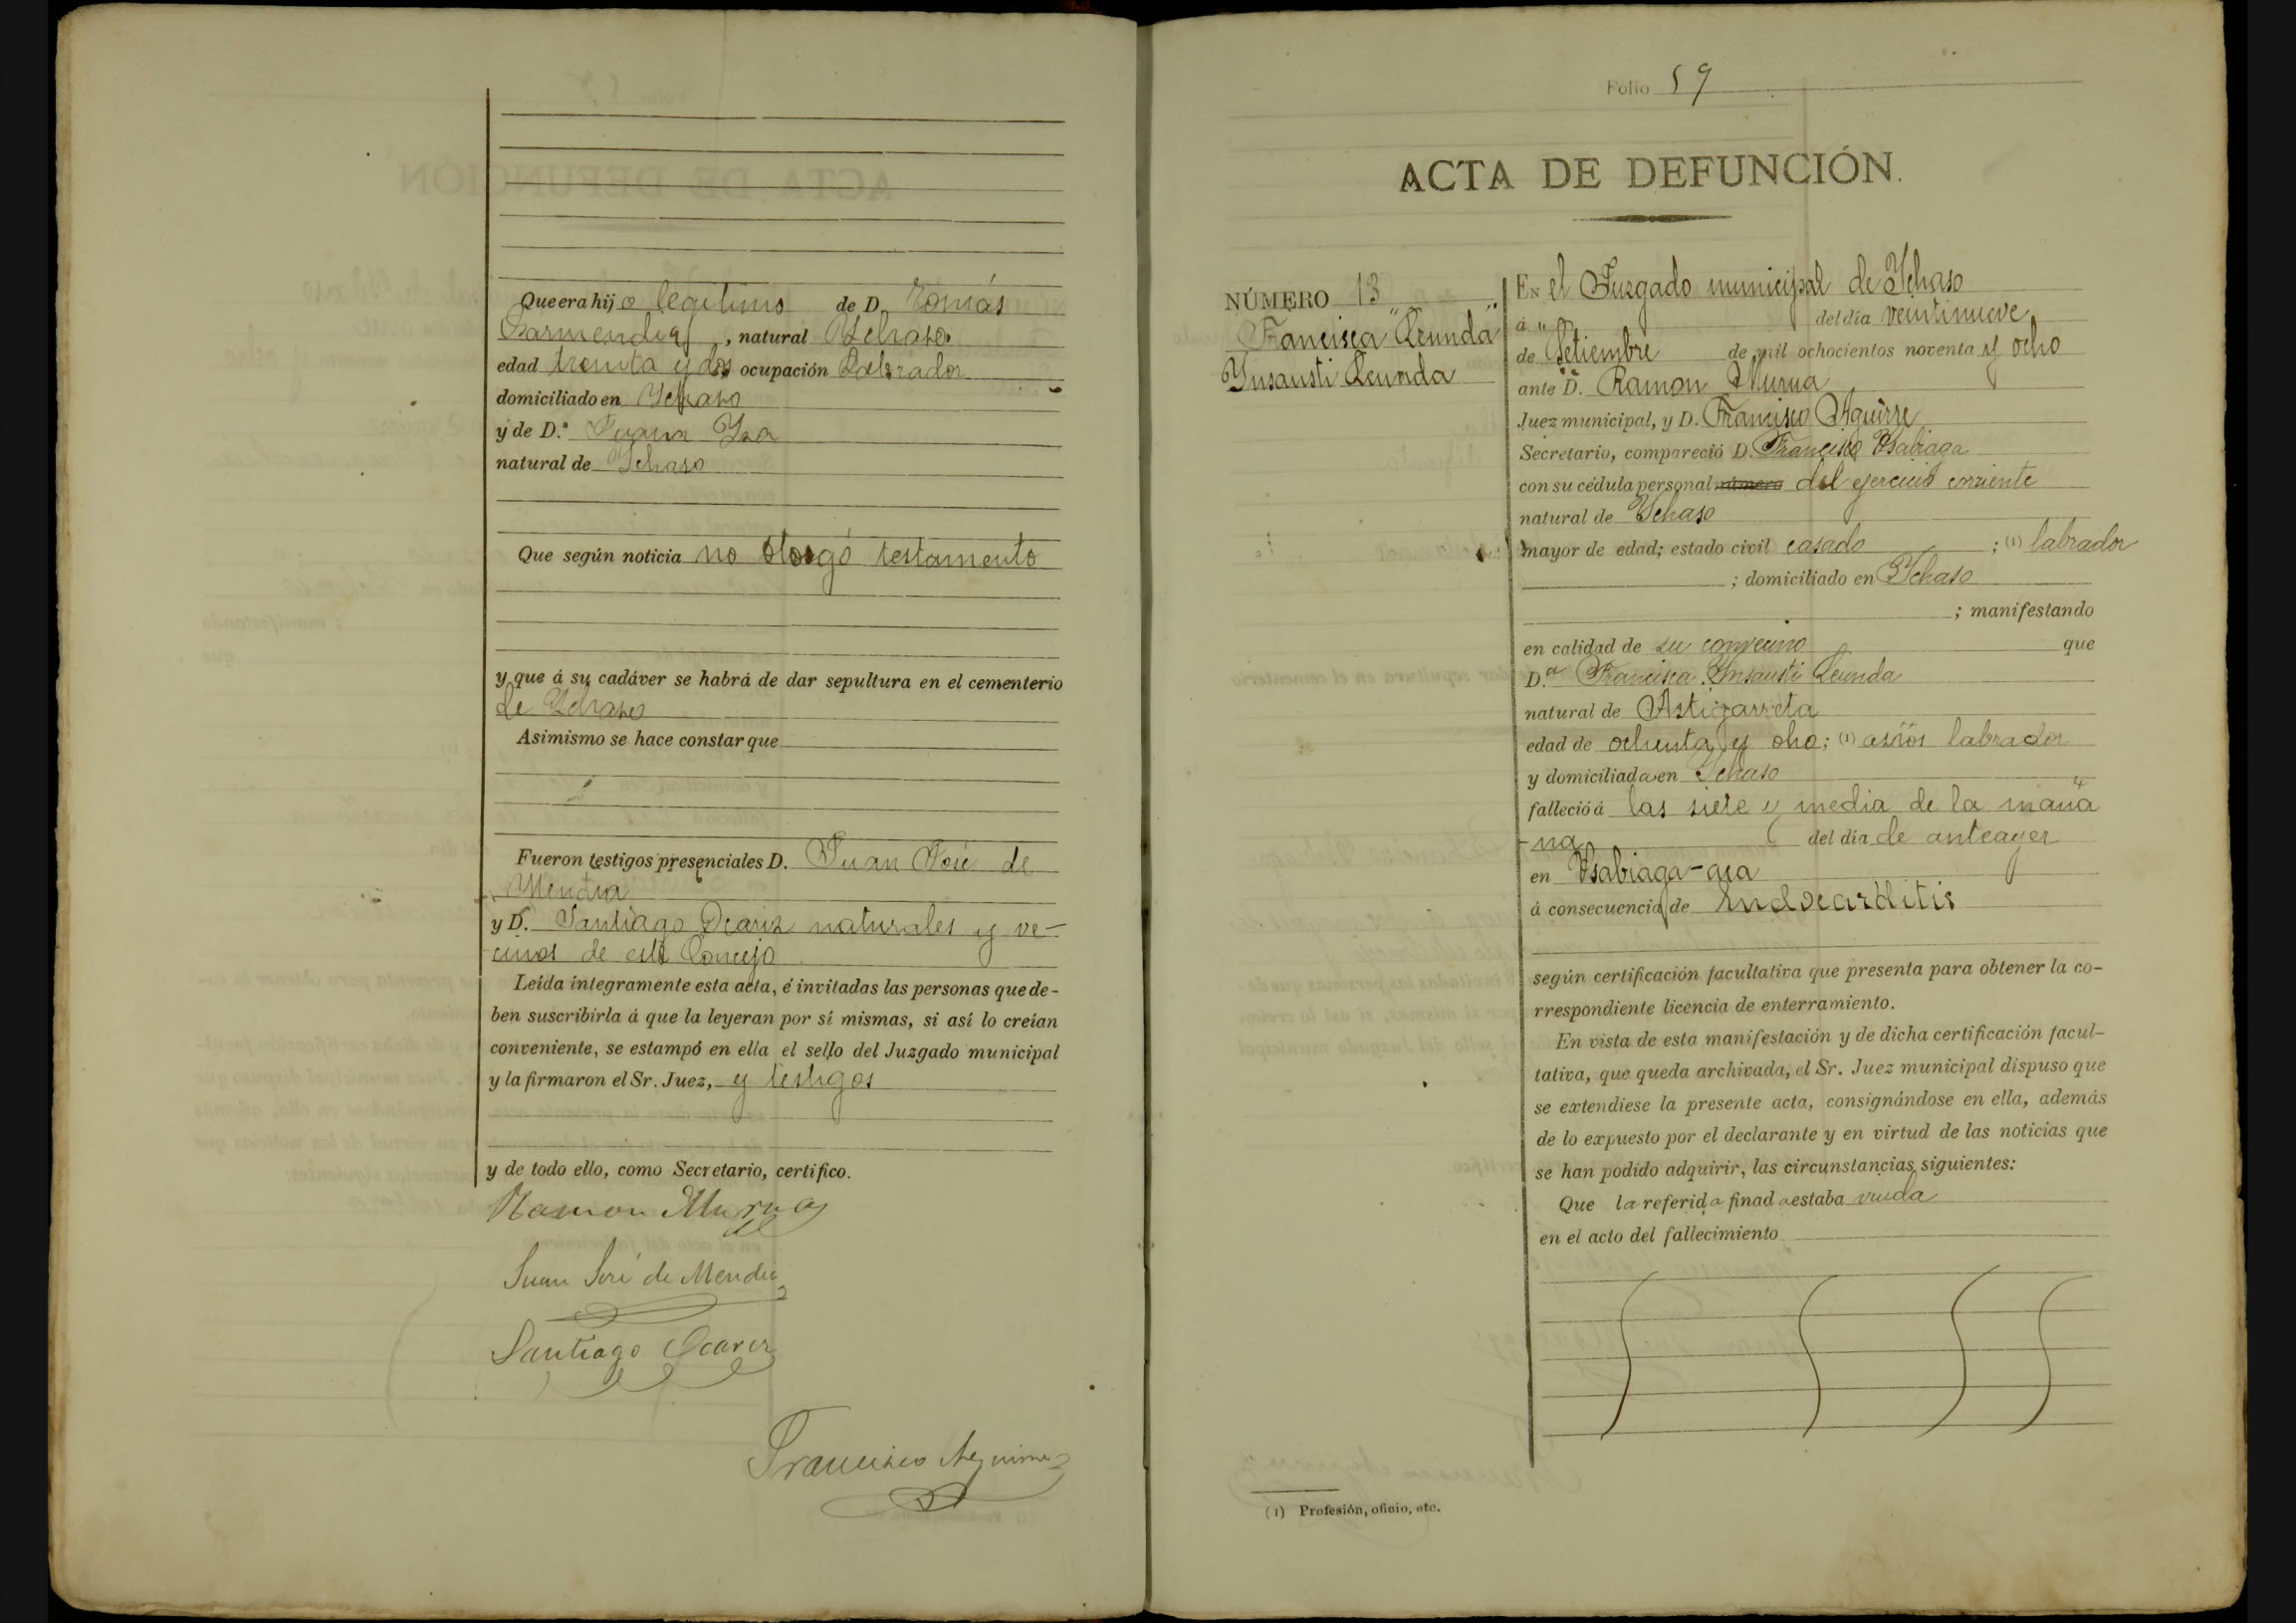 Que era hijo legitimo de D. Tomás
Garmendia, natural Ychaso
edad treinta y dos ocupación Labrador
domiciliado en Ychaso
y de D.ª Juana
natural de Ychaso
Que según noticia no otorgó testamento
y que á su cadáver se habrá de dar sepultura en el cementerio
de Ychaso
Asimismo se hace constar que
Fueron testigos presenciales D. Juan José de
Mendia
y D. Santiago Ocariz naturales y ve-
cinos de este Concejo
Leída íntegramente esta acta, é invitadas las personas que de-
ben suscribirla á que la leyeran por sí mismas, si así lo creían
conveniente, se estampó en ella el sello del Juzgado municipal
y la firmaron el Sr. Juez, y testigos
y de todo ello, como Secretario, certifico.
Ramon Murua
Juan José de Mendia
Santiago Ocariz
Francisco Aguirre
Folio 59
ACTA DE DEFUNCIÓN.
NÚMERO 13
Francisca "Leunda"
Ynsausti Leunda
EN el Juzgado municipal de Ychaso
á " del día veintinueve
de Setiembre de mil ochocientos noventa y ocho
ante D. Ramon Murua
Juez municipal, y D. Francisco Aguirre
Secretario, compareció D. Francisco Ysabiaga
con su cédula personal número del ejercicio corriente
natural de Ychaso
mayor de edad; estado civil casado ; (1) labrador
; domiciliado en Ychaso
; manifestando
en calidad de su convecino que
D.ª Francisca Ynsausti Leunda
natural de Astigarreta
edad de ochenta y oho; (1) años labrador
y domiciliada en Ychaso
falleció á las siete y media de la maña
-na del día de anteayer
en Ysabiaga-
á consecuencia de Endocarditis
según certificación facultativa que presenta para obtener la co-
rrespondiente licencia de enterramiento.
En vista de esta manifestación y de dicha certificación facul-
tativa, que queda archivada, el Sr. Juez municipal dispuso que
se extendiese la presente acta, consignándose en ella, además
de lo expuesto por el declarante y en virtud de las noticias que
se han podido adquirir, las circunstancias siguientes:
Que la referida finada estaba viuda
en el acto del fallecimiento
(1) Profesión, oficio, etc.